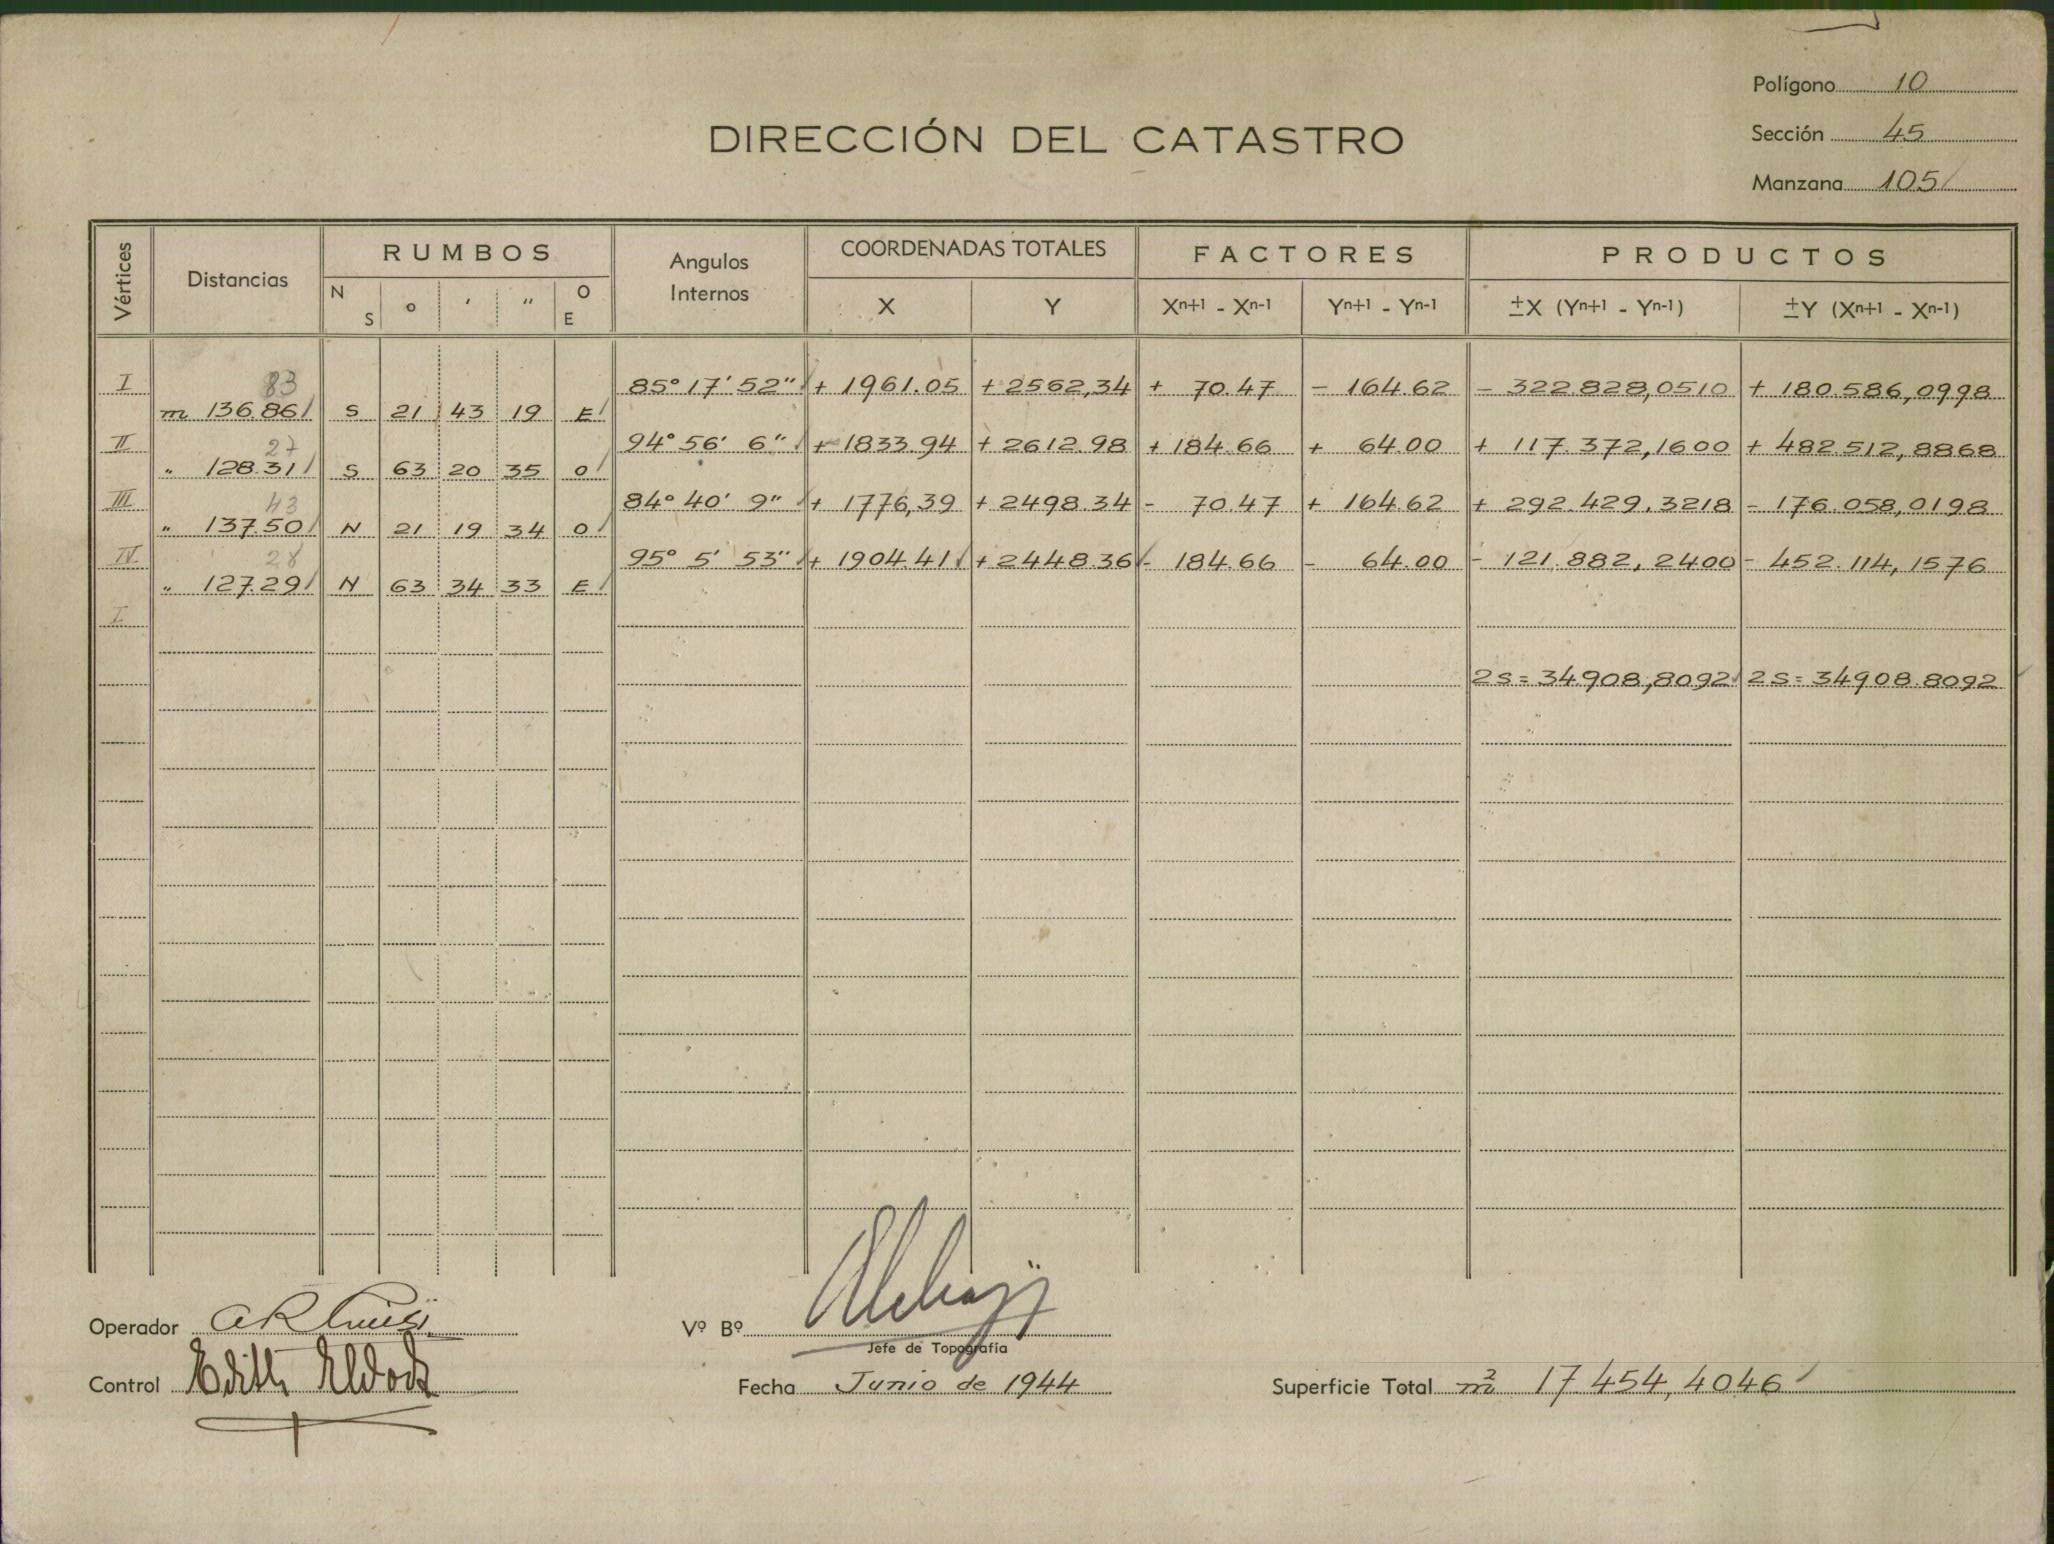 Polígono 10
DIRECCIÓN DEL CATASTRO
Sección 45
Manzana 105
Vértices
Distancias
RUMBOS
N S ° ' " O E
Angulos Internos
COORDENADAS TOTALES
X Y
FACTORES
Xn+1 - Xn-1 Yn+1 - Yn-1
PRODUCTOS
±X (Yn+1 - Yn-1) ±Y (Xn+1 - Xn-1)
I 83 85° 17' 52" + 1961.05 + 2562,34 + 70.47 - 164.62 - 322.828,0510 + 180.586,0998
m 136.86 S 21 43 19 E
II 27 94° 56' 6" + 1833.94 + 2612.98 + 184.66 + 64.00 + 117.372,1600 + 482.512,8868
" 128.31 S 63 20 35 O
III 43 84° 40' 9" + 1776,39 + 2498.34 - 70.47 + 164.62 + 292.429.3218 - 176.058,0198
" 137.50 N 21 19 34 O
IV 28 95° 5' 53" + 1904.41 + 2448.36 - 184.66 - 64.00 - 121.882,2400 - 452.114,1576
" 127.29 N 63 34 33 E
I
2S = 34.908,8092 2S = 34908.8092
Operador
Vº Bº
Jefe de Topografía
Control Edith
Fecha Junio de 1944
Superficie Total m2 17.454,4046